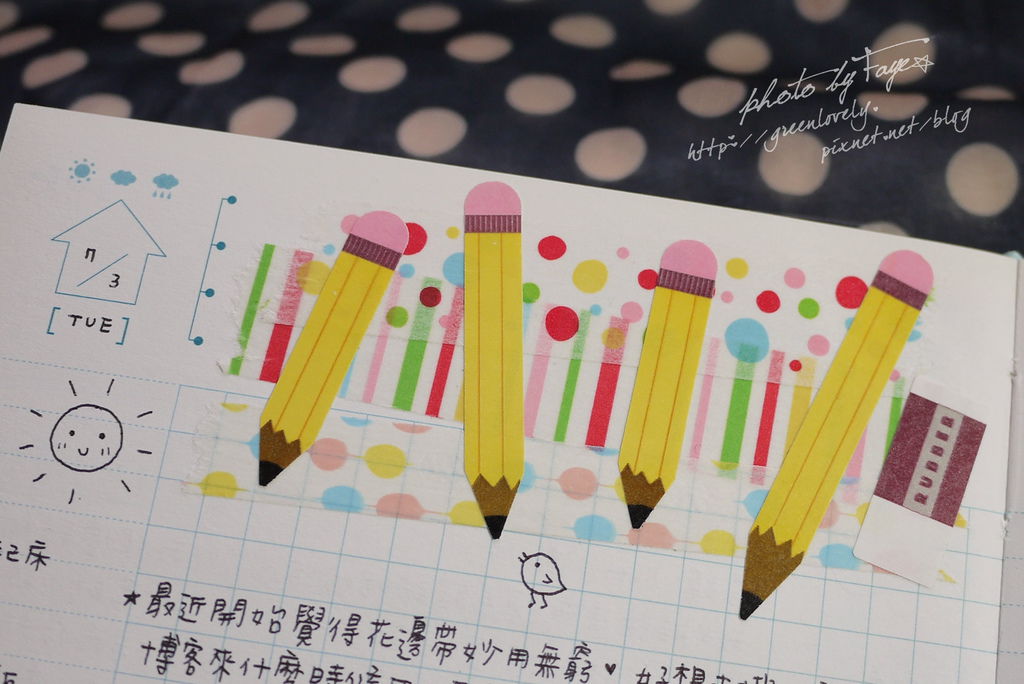 photo by Faye☆
http://greenlovely.
pixnet.net/blog
7/3
[TUE]
RUBBER
起床
★最近開始覺得花邊帶妙用無窮♥好想
博客來什麼時候